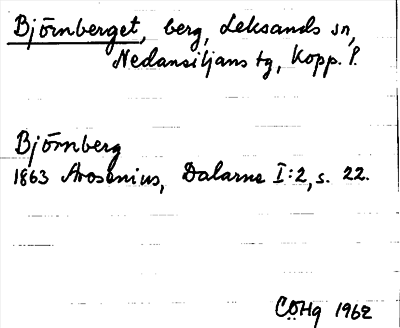 Björnberget, berg, Leksands sn,
Nedansiljans tg, Kopp. l.
Björnberg
1863 Arosenius, Dalarne I:2, s. 22.
CÖHg 1962